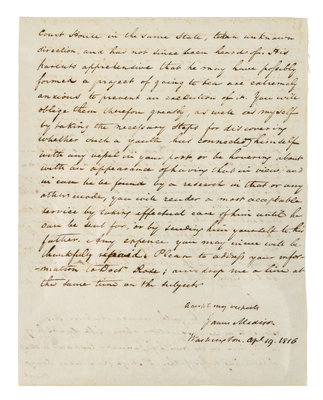 Court House in the same State, took an unknown
direction, and has not since been heard of. His
parents apprehensive that he may have possibly
formed a project of going to Sea are extremely
anxious to prevent an execution of it. You will
oblige them therefore greatly, as well as myself
by taking the necessary steps for discovering
whether such a youth has connected himself
with any vessel in your port, or be hovering about
with an appearance of having that in view; and
in case he be found by a research in that or any
other mode, you will render a most acceptable
service by taking effectual care of him until he
can be sent for, or by sending him yourself to his
father. Any expence you may incur will be
thankfully repaid. Please to address your infor-
mation to Doctr Rose; and drop me a line at
the same time on the subject.
Accept my respects
James Madison
Washington. Apl 19. 1816